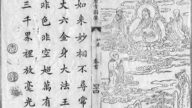 如來妙相不尋常
丈六金身大法王
非色非空超萬有
三千界裡放毫光